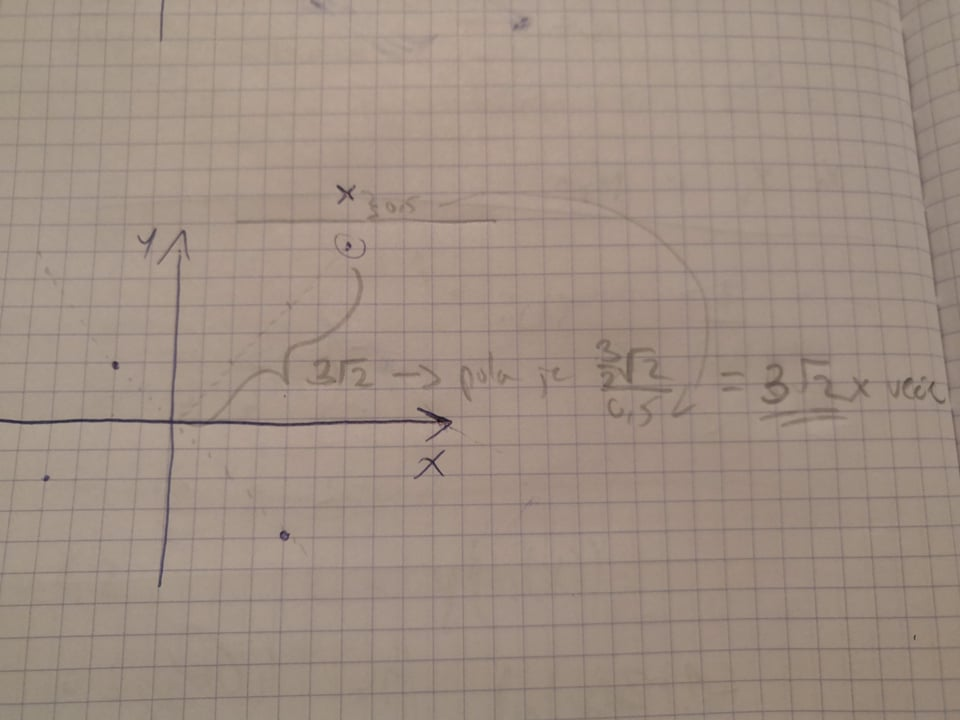 x
} 0,5
Y
3√2 → pola je (3/2)√2 / 0,5 = 3√2 x veće
X